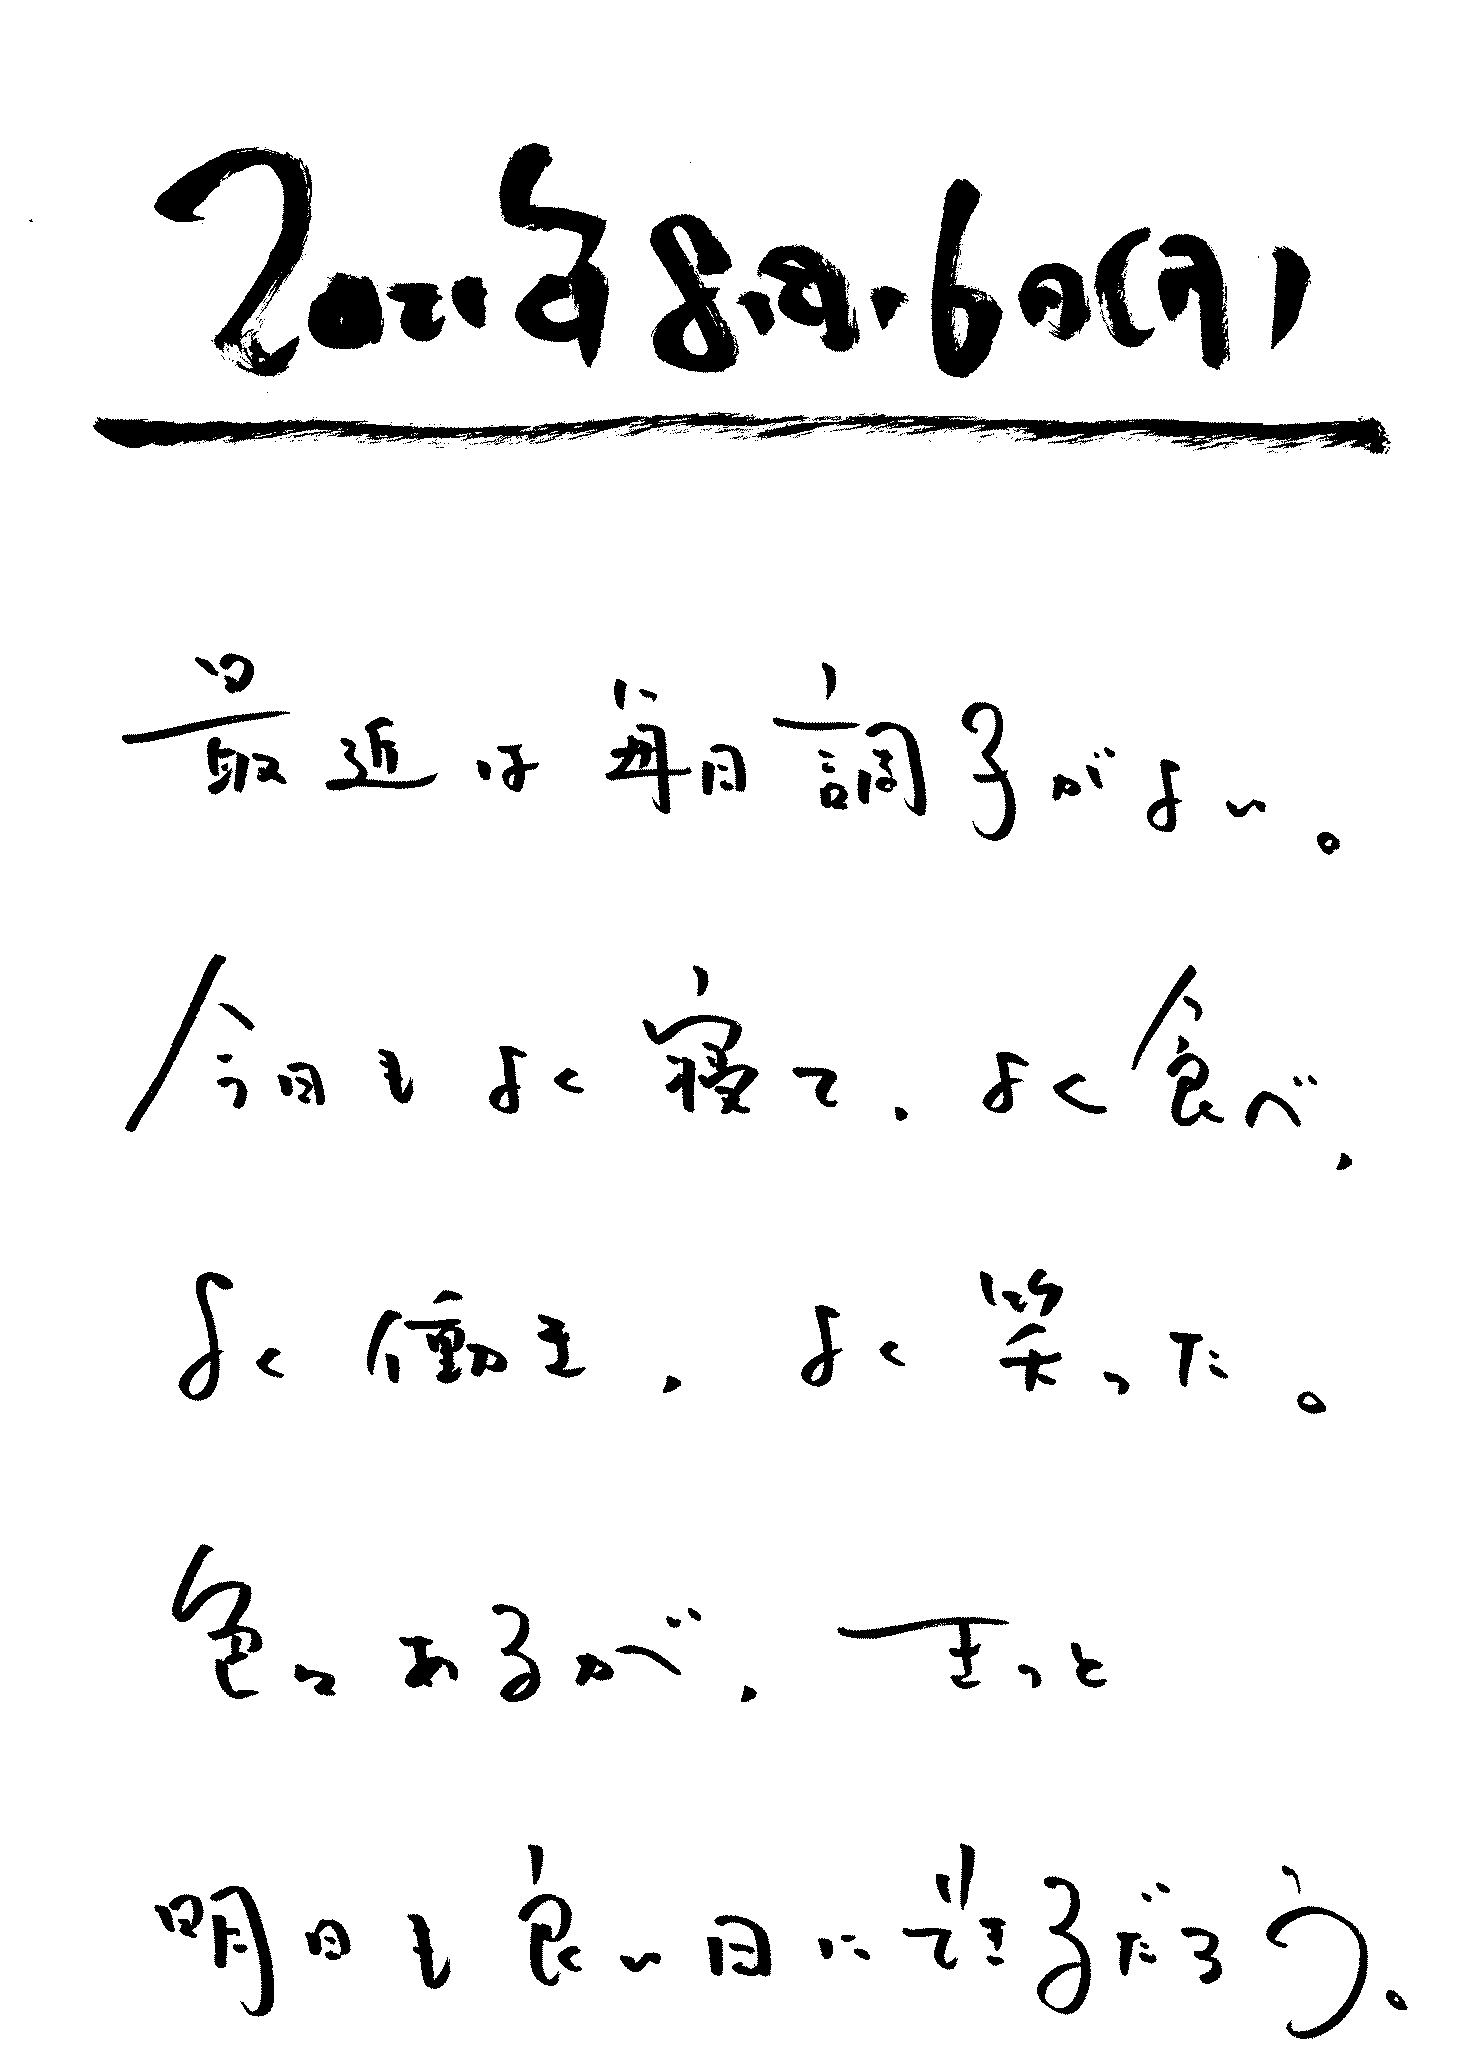 2021年8月6日(月)
最近は毎日調子がよい。
今日もよく寝て、よく食べ、
よく働き、よく笑った。
色々あるが、きっと
明日も良い日にできるだろう。